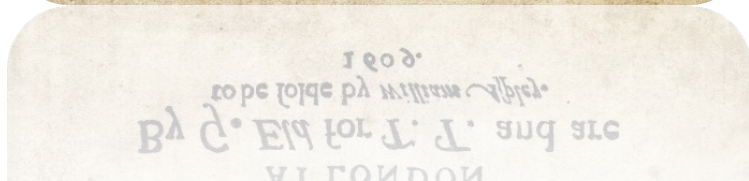 AT LONDON
By G. Eld for T. T. and are
to be ſolde by William Aſpley.
1609.